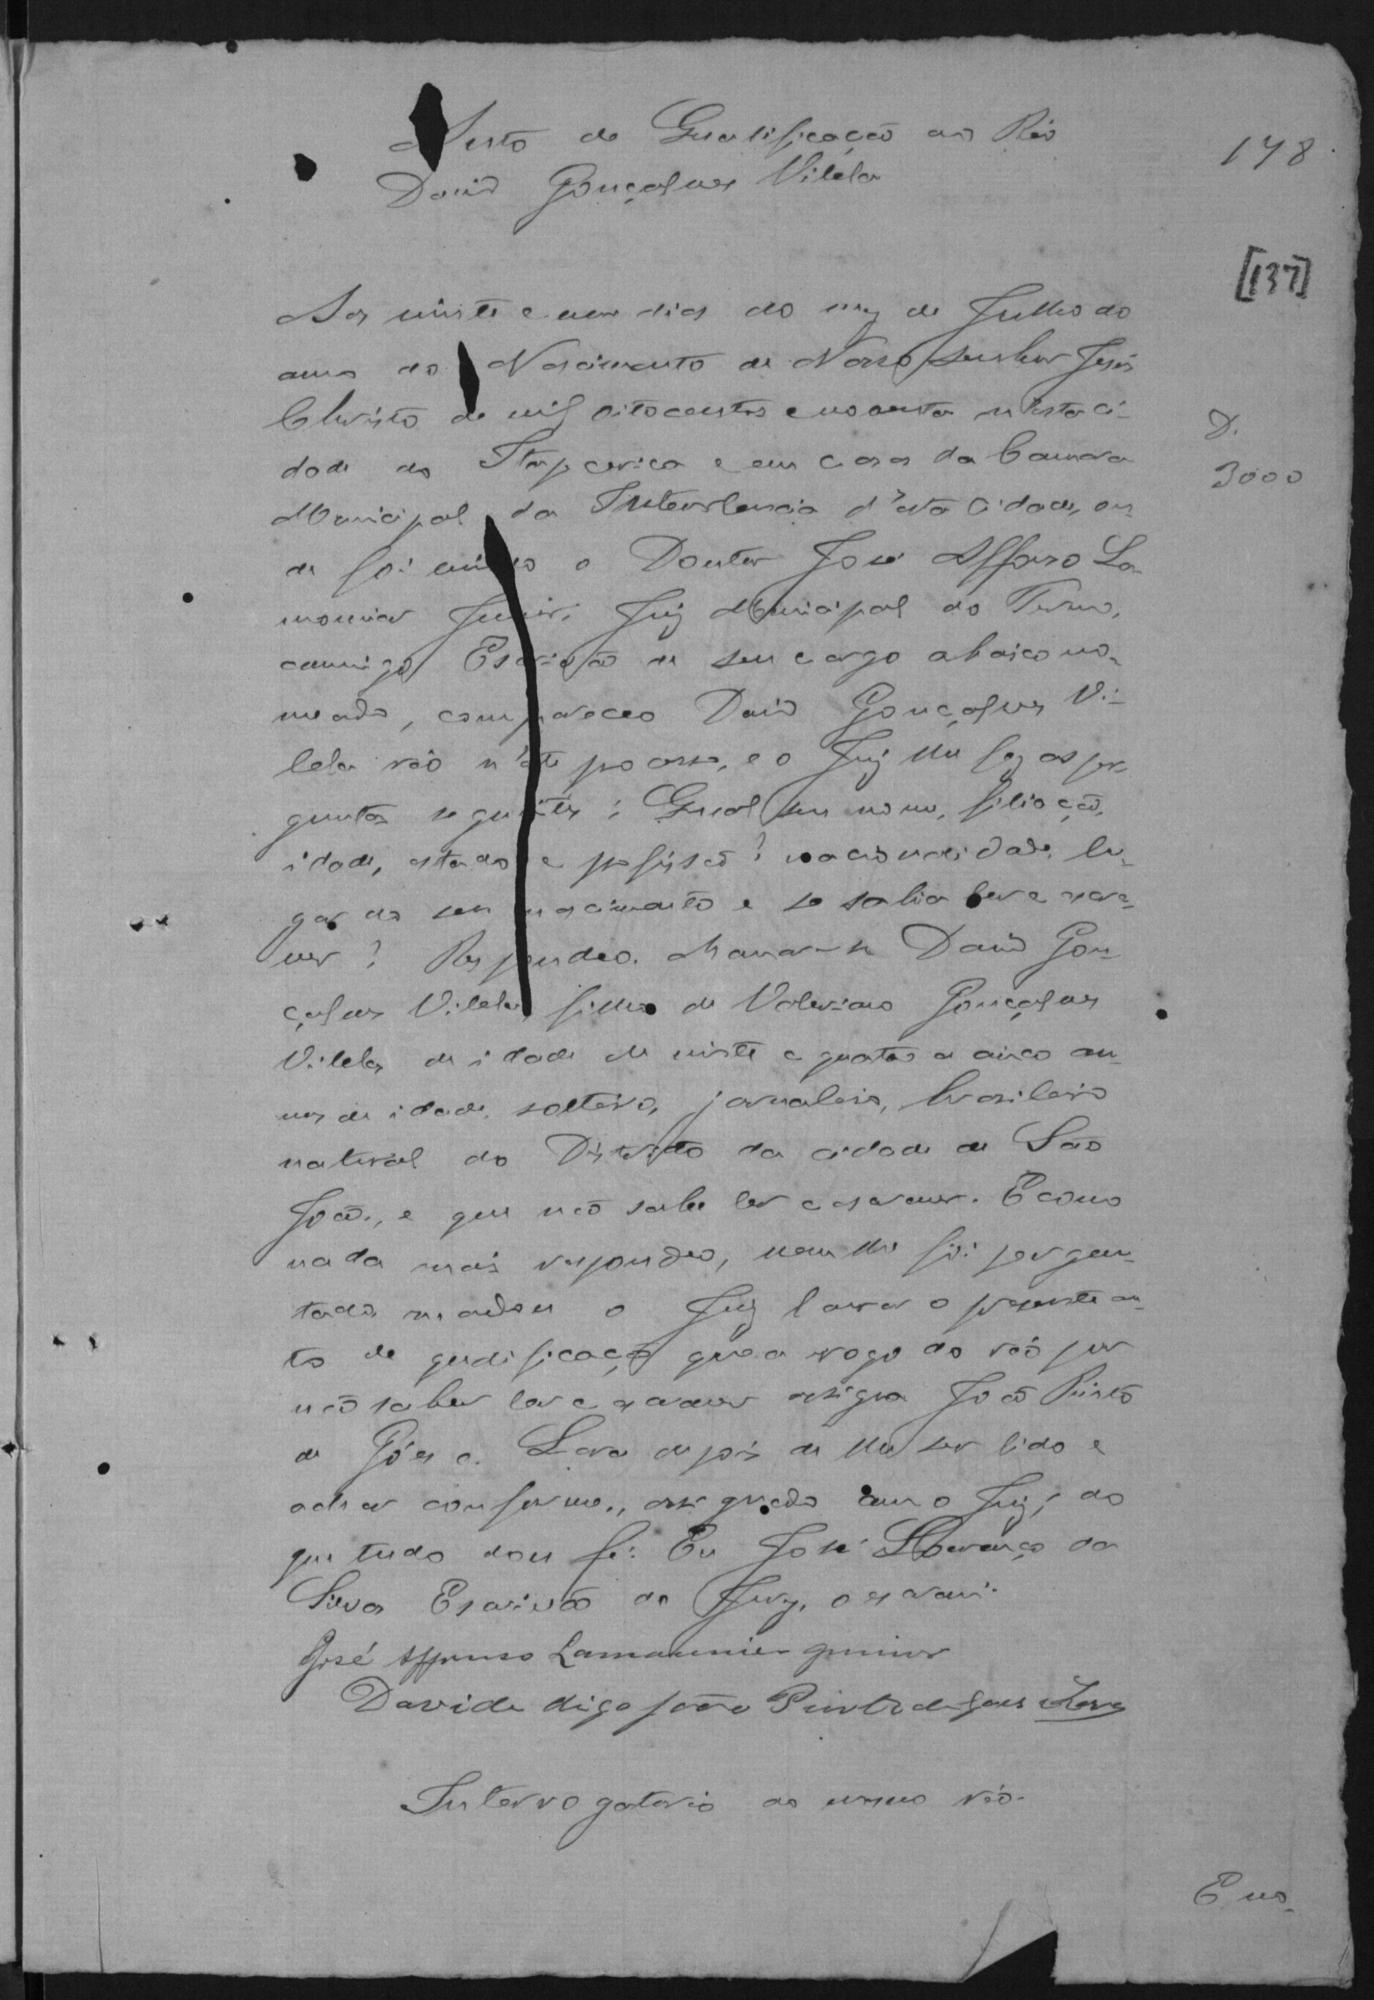 Auto de Gualificação ao Réo
David Gonçalves Vilela
178
[137]
Aos vinte e um dias do mez de Julho do
anno do Nascimento de Nosso Senhor Jesús
Christo de mil oitocentos e noventa n'esta ci-
dade de Itapecerica e em casa da Camara
Municipal da Intendencia d'esta Cidade, on-
de foi vindo o Doutor José Affonso La-
mounier Junior, Juiz Municipal do Termo,
commigo Escrivão de seu cargo abaixo no-
meado, compareceo David Gonçalves Vi-
lela réo n'este processo, e o Juiz lhe fez as per-
guntas seguintes: Gual seu nome, filiação,
idade, estado e profissão? nacionalidade, lu-
gar do seu nascimento e se sabia ler e escre-
ver? Respondeo. chamar-se David Gon-
çalves Vilela, filho de Valeriano Gonçalves
Vilela, de idade de vinte e quatro a cinco an-
nos de idade, solteiro, jornaleiro, brasileiro
natural do Districto da cidade de São
João, e que não sabe ler e escrever. E como
nada mais respondeo, nem lhe foi pergun-
tado mandou o Juiz lavrar o presente au-
to de qualificação que a rogo do réo por
não saber ler e escrever assigna João Pinto
de Góes e Lara depois de lhe ser lido e
achar conforme, assignado com o Juiz; do
que tudo dou fé: Eu José Lourenço da
Silva Escrivão do Jury, o escrevi.
José Affonso Lamounier Junior
Davide digo João Pinto de Goes e Lara
Interrogatorio ao mesmo réo.
D.
3000
E no